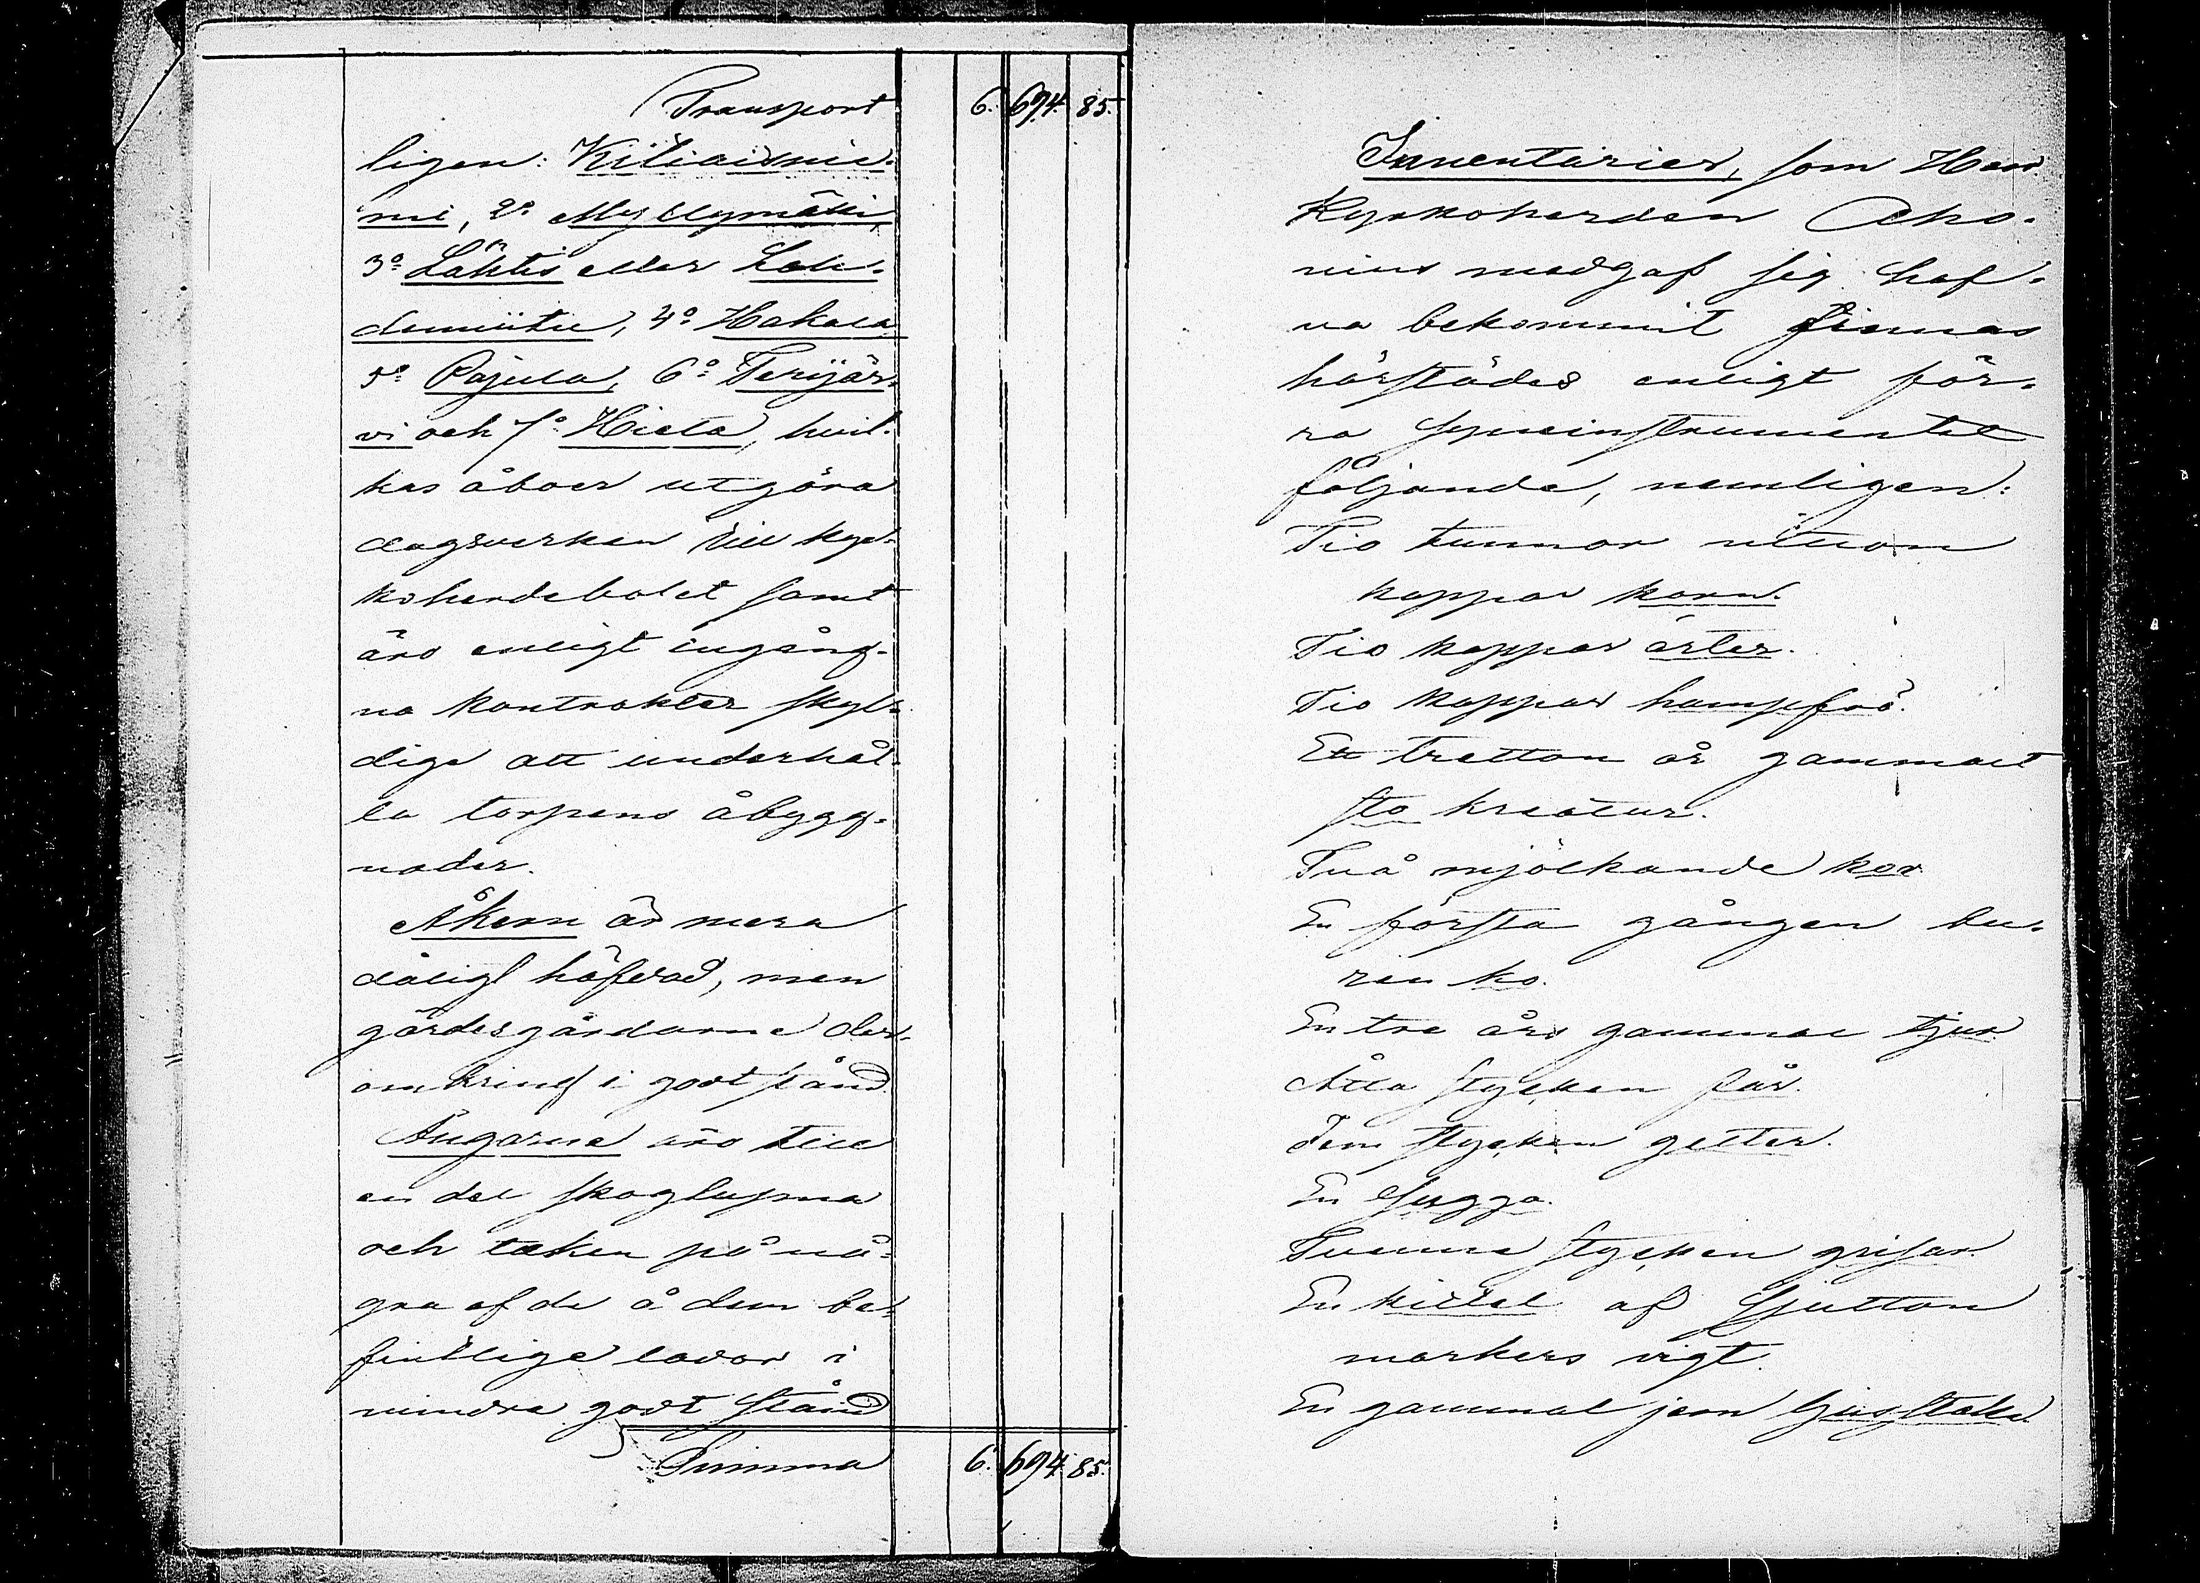 Transport 6. 694. 85.
ligen: Kiliaisnie-
mi, 2:o Myllymäki,
3:o Lähtis eller Leh-
doniitu, 4:o Hakala
5:o Pajula, 6:o Terijär-
vi och 7:o Hieta, hvil-
kas åboer utgöra
dagsverken till kyr-
koherdebolet samt
äro enligt ingång-
na kontrakter skyl-
dige att underhål-
la torpens åbygg-
nader.
Åkern är mera
dåligt häfdad, men
gärdesgårdarne der-
omkring i godt stånd.
Ängarne äro till
en del skoglupna
och taken på nå-
gra af de å dem be-
fintlige lador i
mindre godt stånd
Summa 6. 694. 85.
Inventarier, som Herr
Kyrkoherden Aho-
nius medgaf sig haf-
va bekommit finnas
härstädes enligt för-
ra syneinstrumentet
följande, nemligen:
Tio tunnor nittom
kappar korn.
Tio kappar ärter.
Tio kappar hampfrö.
Ett tretton år gammalt
sto kreatur.
Två mjölkande kor
En första gången bu-
ren ko.
En tre års gammal tjur
Åtta stycken får.
Fem stycken getter.
En sugga.
Tvenne stycken grisar.
En kittel af sjutton
markers vigt.
En gammal jern ljusstake.